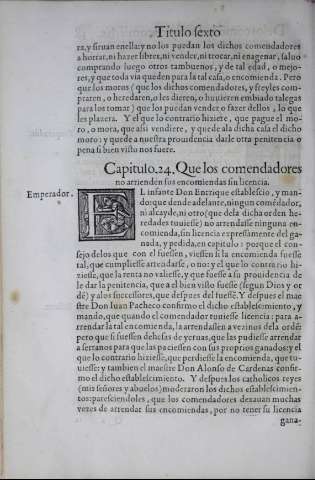 Titulo sexto
ra, y siruan enella: y no los puedan los dichos comendadores
ahorrar, ni hazer libres, ni vender, ni trocar, ni enagenar, saluo
comprando luego otros tambuenos, y de tal edad, o mejo-
res, y que toda via queden para la tal casa, o encomienda. Pero
que los moros (que los dichos comendadores, y freyles com-
praren, o heredaren, o les dieren, o huuieren embiado talegas
para los tomar) que los puedan vender o fazer dellos, lo que
les plazera. Y el que lo contrario hiziere, que pague el mo-
ro, o mora, que assi vendiere, y quede ala dicha casa el dicho
moro: y quede a nuestra prouidencia darle otra penitencia o
pena si bien visto nos fuere.
Capitulo. 24. Que los comendadores
no arrienden sus encomiendas sin licencia.
Emperador.
EL infante Don Enrrique establescio, y man-
do: que dende adelante, ningun comẽdador,
ni alcayde, ni otro (que dela dicha orden he-
redades touiesse) no arrendasse ninguna en-
comienda, sin licencia expressamente del ga-
nada, y pedida, en capitulo: porque el con-
sejo delos que con el fuessen, viessen si la encomienda fuesse
tal, que cumpliesse arrẽdarse, o no: y el que lo contrario hi-
ziesse, que la renta no valiesse, y que fuesse a su prouidencia de
le dar la penitencia, que a el bien visto fuesse (segun Dios y or
dẽ) y alos successores, que despues del fuessẽ. Y despues el mae
stre Don Iuan Pacheco confirmo el dicho establescimiento, y
mando, que quando el comendador touiesse licencia: para a-
rrendar la tal encomienda, la arrendassen a vezinos dela ordẽ:
pero que si fuessen dehesas de yeruas, que las pudiesse arrendar
a serranos para que las paciessen con sus propios ganados: y el
que lo contrario hiziesse, que perdiesse la encomienda, que tu-
uiesse: y tambien el maestre Don Alonso de Cardenas confir-
mo el dicho establescimiento. Y despues los catholicos reyes
(mis señores y abuelos) moderaron los dichos establescimien-
tos: paresciendoles, que los comendadores dexauan muchas
vezes de arrendar sus encomiendas, por no tener su licencia
gana-